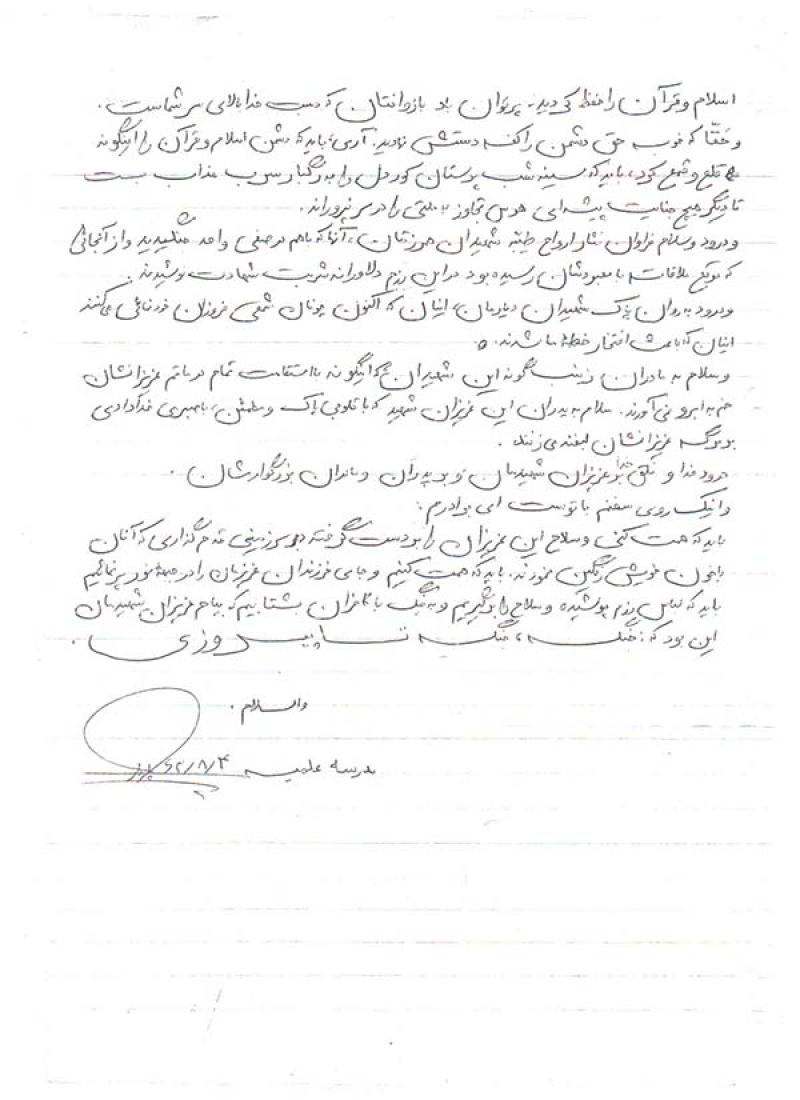 اسلام و قرآن را حفظ کردید. پرتوان باد بازوانتان که دست خدا بالای سر شماست.
و حقّا که خوب حق دشمن را کف دستش نهادید. آری، باید که دشمن اسلام و قرآن را اینگونه
قلع و قمع کرد، باید که سینه شب پرستان کوردل را به رگبار سرب مذاب بست
تا دیگر هیچ جنایت پیشه‌ای هوس تجاوز به ملتی را در سر نپروراند.
و درود و سلام فراوان نثار ارواح طیبّه شهیدان همرزمتان، آنها که باهم در صفی واحد میجنگیدید و از آنجائی
که موقع ملاقات با معبودشان رسیده بود در این رزم دلاورانه شربت شهادت نوشیدند.
و درود به روان پاک شهیدان دیارمان، اینان که اکنون چونان شمعی فروزان نمائی می‌کنند
اینان که باعث افتخار خطهٔ ما شدند.
و سلام به مادران زینب گونه این شهیدان که اینگونه با استقامت تمام در ماتم عزیزانشان
خم به ابرو نمی‌آورند. سلام به پدران این عزیزان شهید که با قلوبی پاک و مطمئن، با صبری خدادادی
بر مرگ عزیزانشان لبخند می‌زنند.
درود خدا و خلق خدا بر عزیزان شهیدمان و بر پدران و مادران بزرگوارشان.
و اینک روی سخنم با توست ای برادرم:
باید که همت کنی و سلاح این عزیزان را بر دست گرفته و بر سرزمینی قدم گذاری که آنان
با خون خویش رنگین نمودند. باید که همت کنیم و جای فرزندان عزیزمان را در جبهه نور پر نمائیم
باید که لباس رزم پوشیده و سلاح را برگیریم و به جنگ با کافران بشتابیم که پیام عزیزان شهیدمان
این بود که: جنگ، جنگ تا پیروزی.
والسلام.
مدرسه علمیه ۶۲/۸/۴